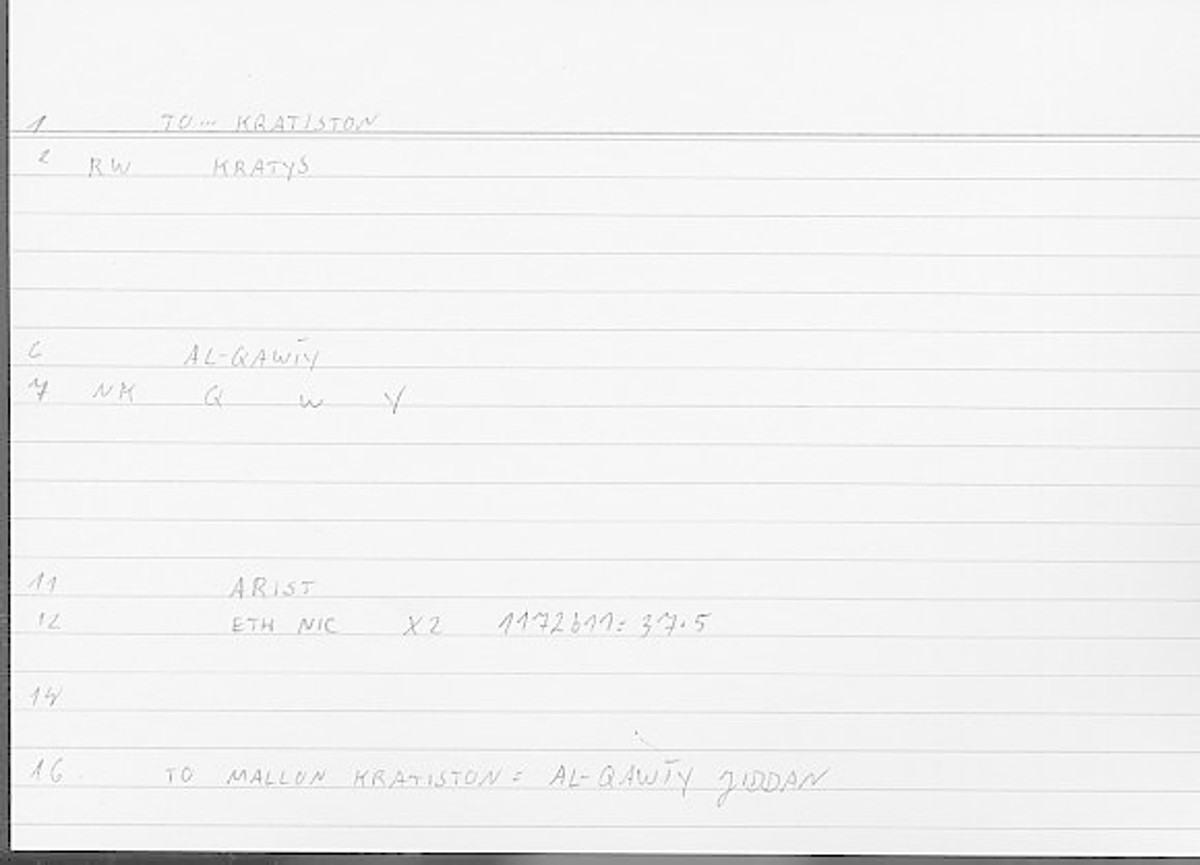 1 TO... KRATISTON
2 RW KRATYS
6 AL-QAWĪY
7 NK Q W Y
11 ARIST
12 ETH NIC X2 1172b11: 37.5
14
16 TO MALLON KRATISTON = AL-QAWĪY JIDDAN